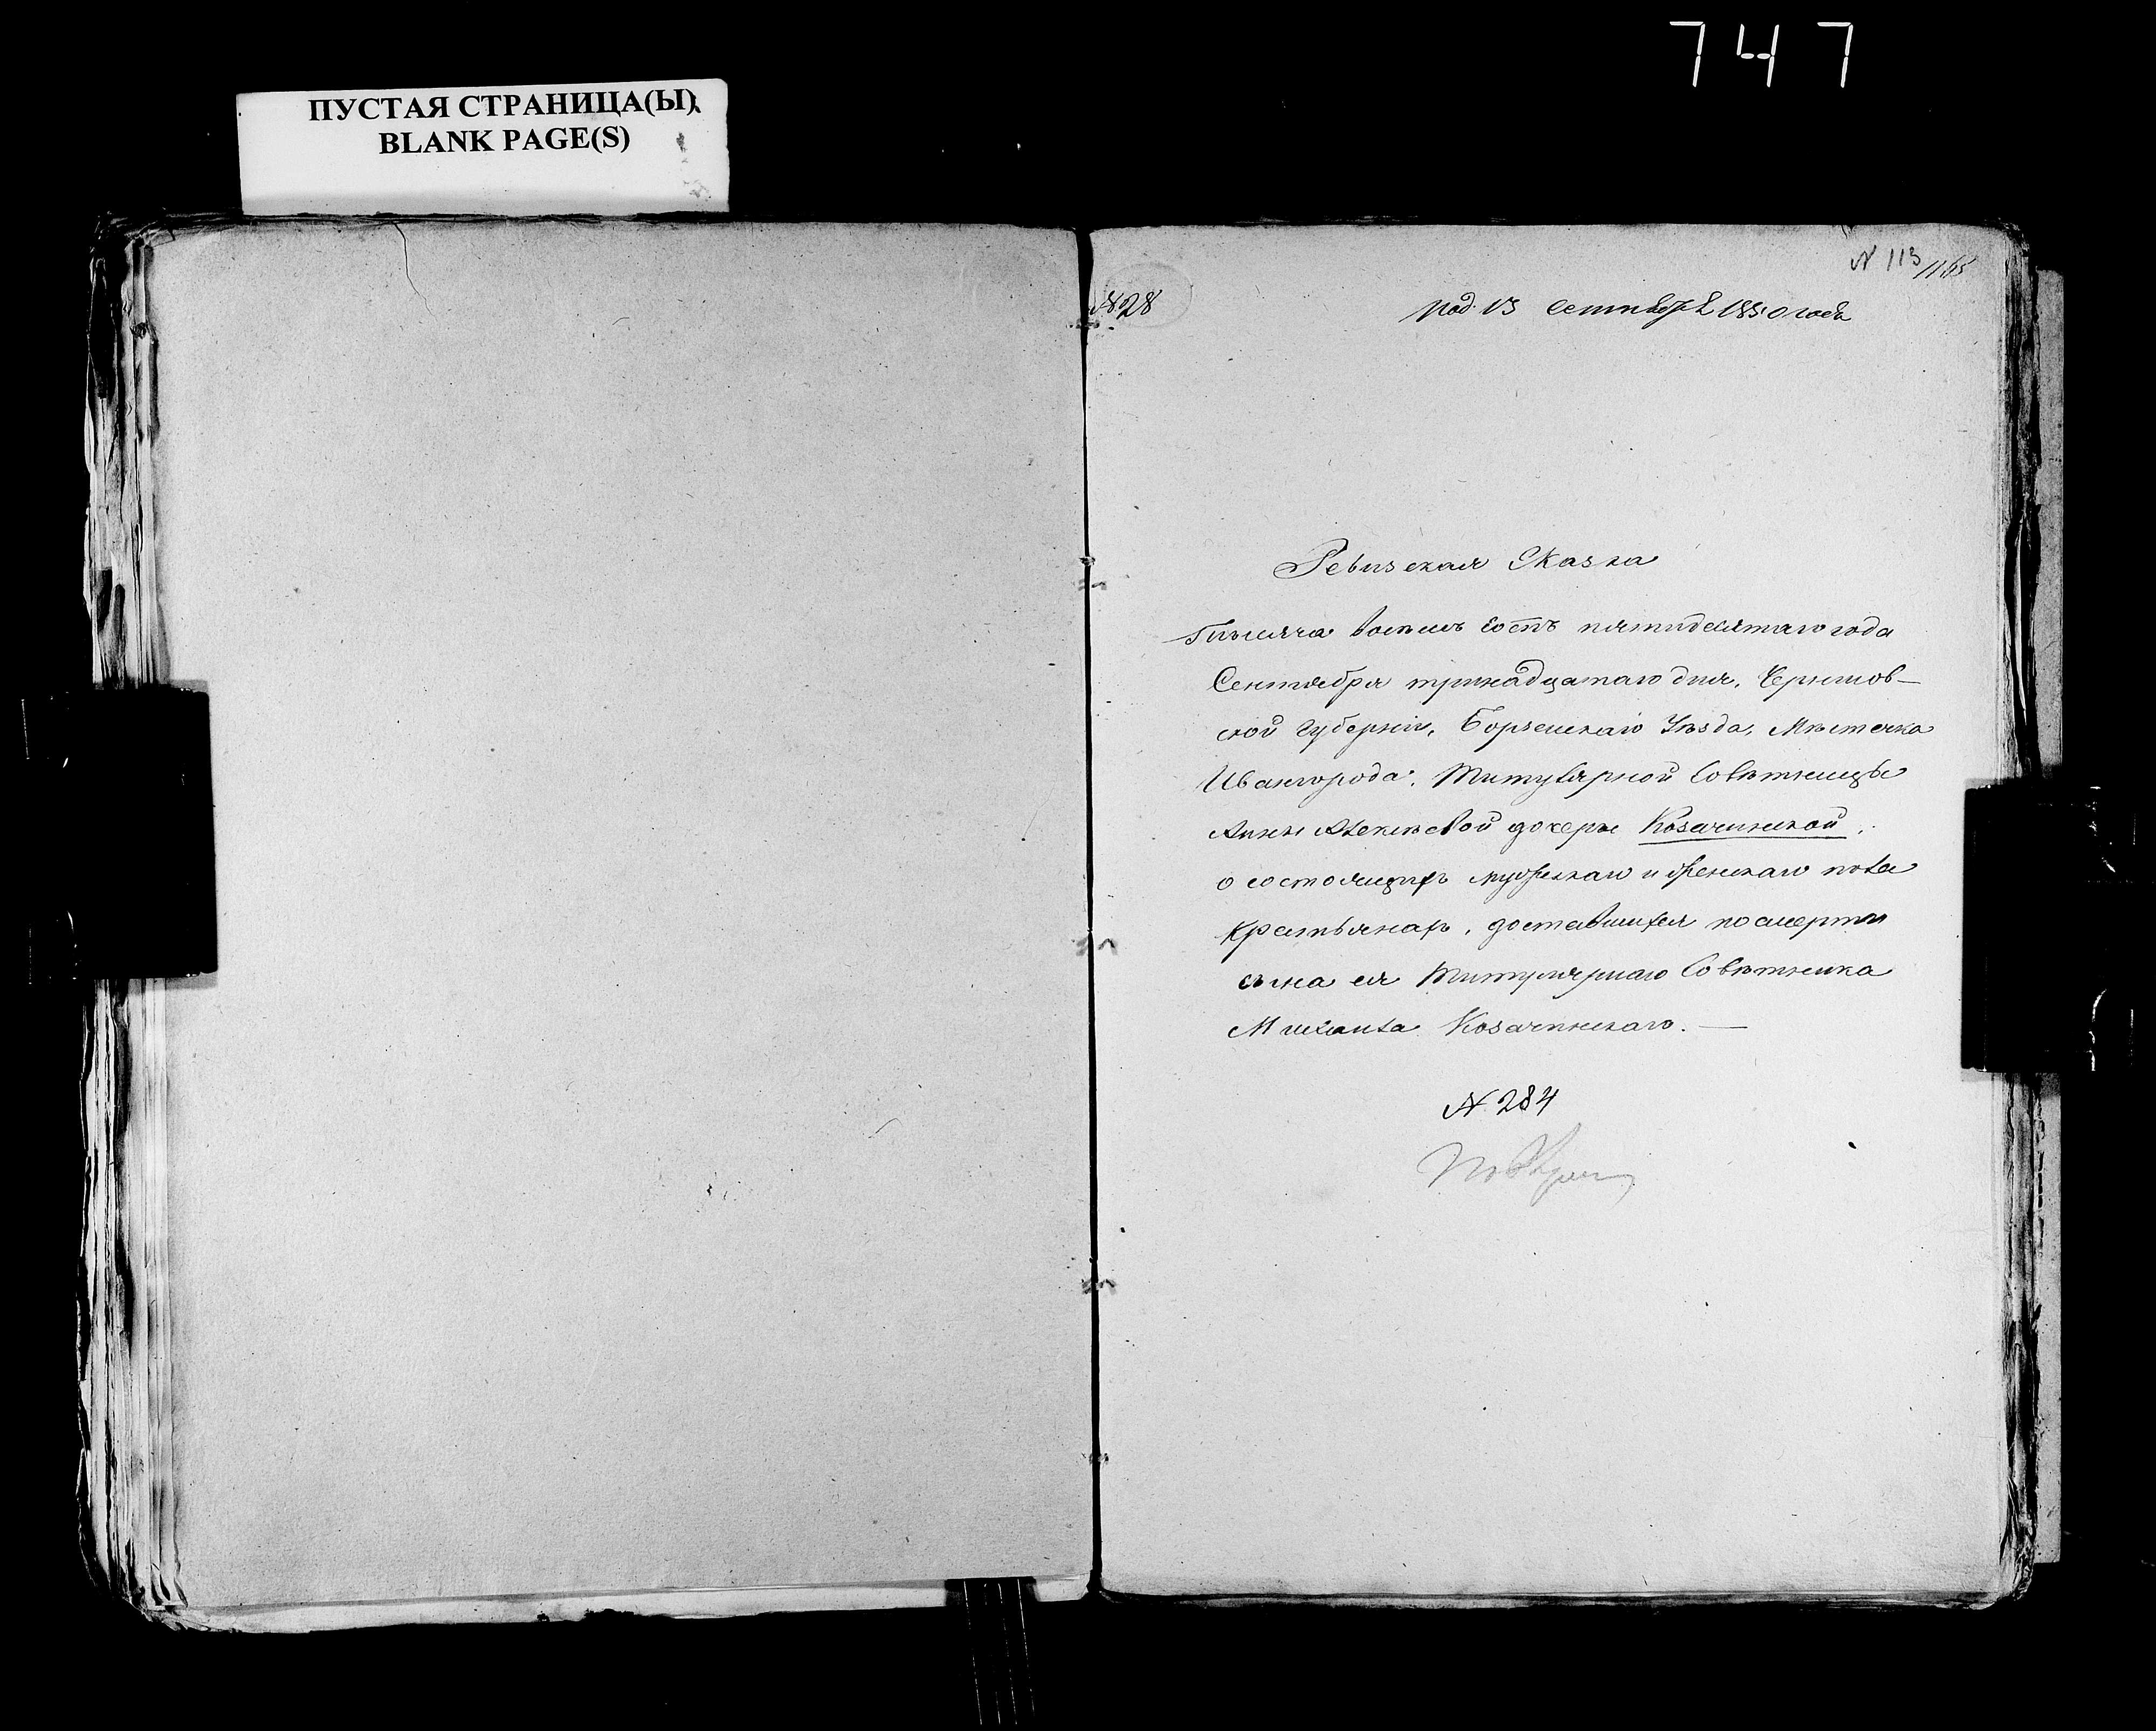 747
ПУСТАЯ СТРАНИЦА(Ы)
BLANK PAGE(S)
N 113 / 1165
828
под. 13 Сентября 1850 года
Ревизская Сказка
Тысяча восемь сотъ пятидесятаго года
Сентября тринадцатаго дня, Чернигов–
ской Губерніи, Борзенскаго Уѣзда, Мѣстечка
Ивангорода, Титулярной Совѣтницы
Анны Алексѣевой дочери Козачинской,
о состоящихъ мужескаго и женскаго пола
крестьянахъ, доставшихся по смерти
сына ея Титулярнаго Совѣтника
Михаила Козачинскаго. —
N 284